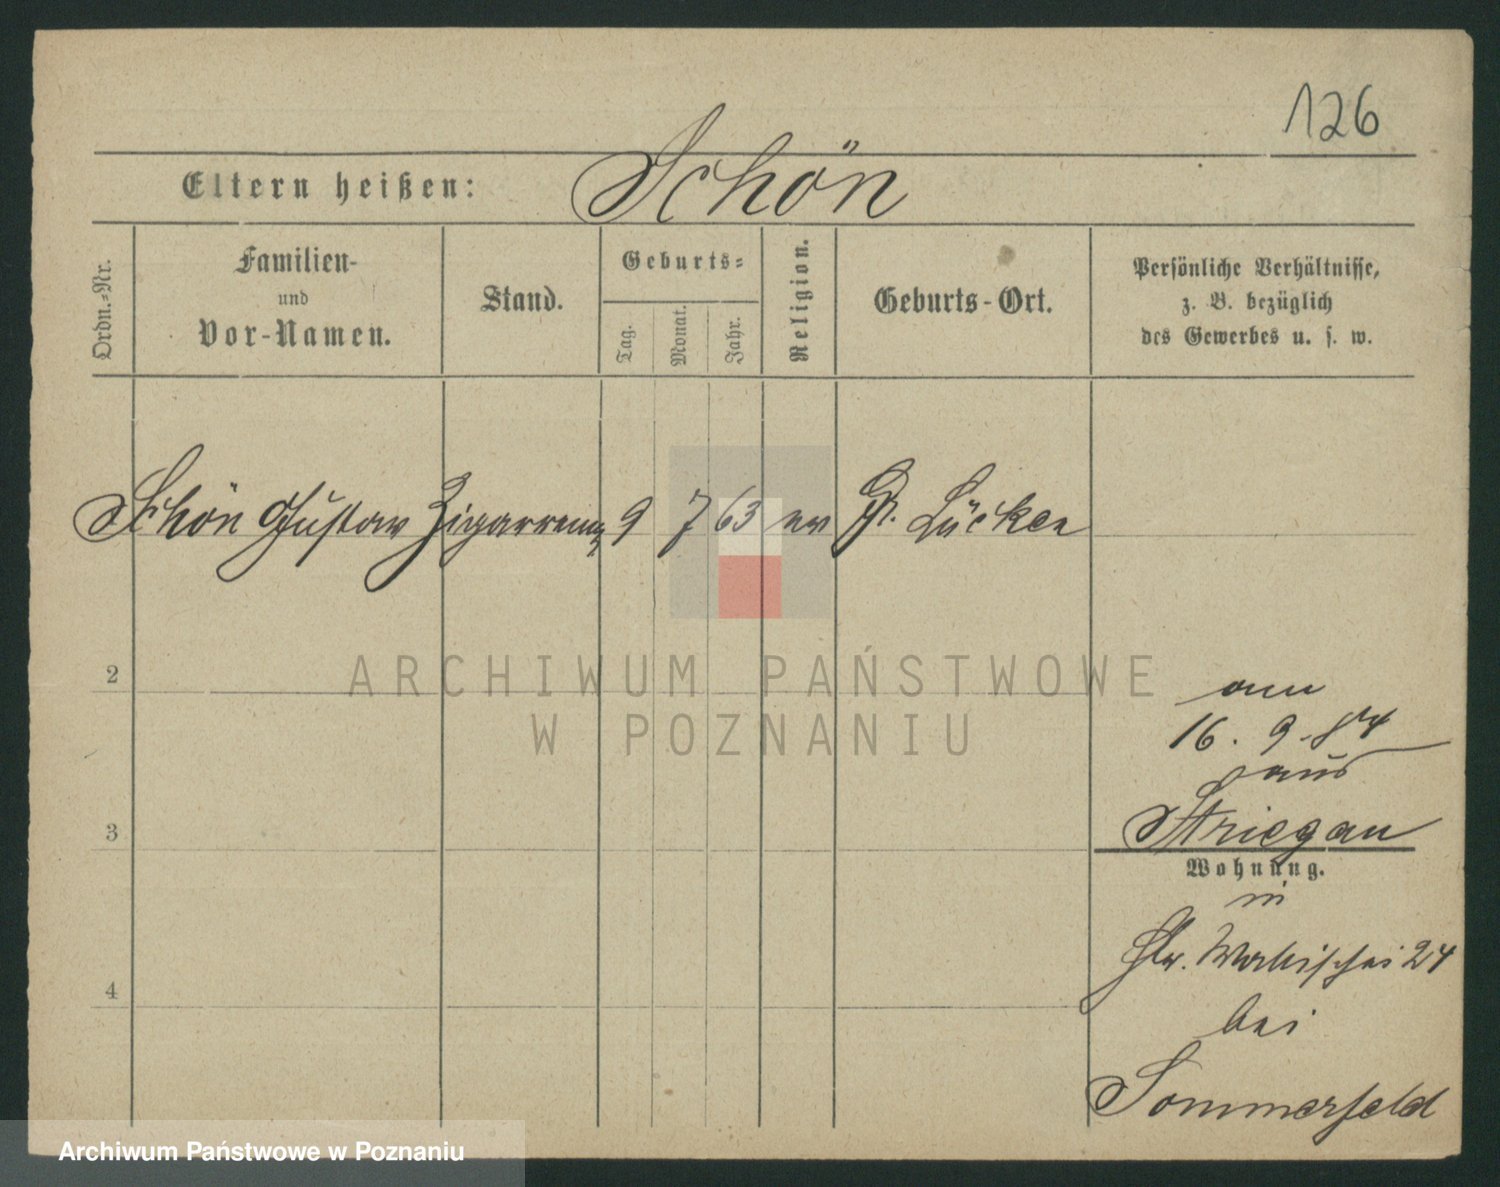 126
Eltern heißen: Schön
Ordn.=Nr.
Familien-
und
Vor-Namen.
Stand.
Geburts=
Tag.
Monat.
Jahr.
Religion.
Geburts-Ort.
Persönliche Verhältnisse,
z. B. bezüglich
des Gewerbes u. s. w.
Schön Gustav 9 7 63 ev Gr. Lücken
2
3
4
am
16. 9. 84
aus
Striegau
Wohnung.
in
24
bei
Sommerfeld
ARCHIWUM PAŃSTWOWE
W POZNANIU
Archiwum Państwowe w Poznaniu